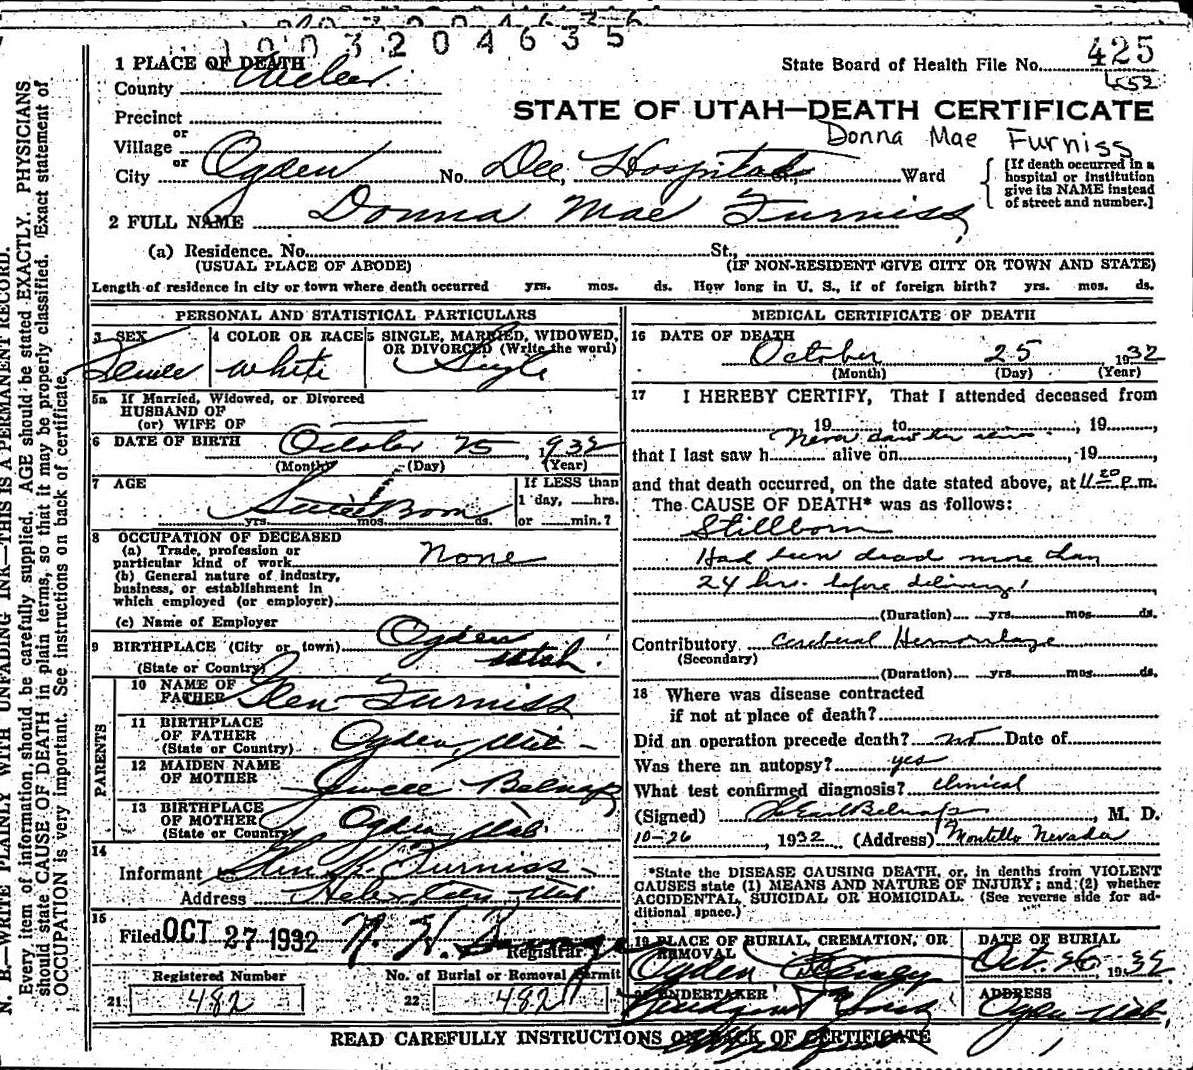 1 0 0 3 2 0 4 6 3 5
425
1 PLACE OF DEATH
State Board of Health File No.
County Weber
STATE OF UTAH—DEATH CERTIFICATE
Precinct
Donna Mae Furniss
or
Village
or
City Ogden No. Dee Hospital St., Ward
[If death occurred in a
hospital or institution
give its NAME instead
of street and number.]
2 FULL NAME Donna Mae Furniss
(a) Residence. No. St.,
(USUAL PLACE OF ABODE) (IF NON-RESIDENT GIVE CITY OR TOWN AND STATE)
Length of residence in city or town where death occurred yrs. mos. ds. How long in U. S., if of foreign birth? yrs. mos. ds.
PERSONAL AND STATISTICAL PARTICULARS
3 SEX
Female
4 COLOR OR RACE
White
5 SINGLE, MARRIED, WIDOWED,
OR DIVORCED (Write the word)
Single
5a If Married, Widowed, or Divorced
HUSBAND OF
(or) WIFE OF
6 DATE OF BIRTH October 25, 1932
(Month) (Day) (Year)
7 AGE
Still Born
yrs. mos. ds.
If LESS than
1 day, hrs.
or min.?
8 OCCUPATION OF DECEASED
(a) Trade, profession or
particular kind of work None
(b) General nature of industry,
business, or establishment in
which employed (or employer)
(c) Name of Employer
9 BIRTHPLACE (City or town) Ogden
(State or Country) Utah.
PARENTS
10 NAME OF
FATHER Glen Furniss
11 BIRTHPLACE
OF FATHER
(State or Country) Ogden, Utah
12 MAIDEN NAME
OF MOTHER Belnap
13 BIRTHPLACE
OF MOTHER
(State or Country) Ogden, Utah
14
Informant Furniss
Address Utah
15
Filed OCT 27 1932
Registrar
Registered Number
21 482
No. of Burial or Removal Permit
22 482
MEDICAL CERTIFICATE OF DEATH
16 DATE OF DEATH
October 25 1932
(Month) (Day) (Year)
17 I HEREBY CERTIFY, That I attended deceased from
19 to , 19
Never saw her alive
that I last saw h alive on , 19
and that death occurred, on the date stated above, at 11:20 P.m.
The CAUSE OF DEATH* was as follows:
Stillborn
Had been dead more than
24 hrs. before delivery!
(Duration) yrs. mos. ds.
Contributory Cerebral Hemorrhage
(Secondary)
(Duration) yrs. mos. ds.
18 Where was disease contracted
if not at place of death?
Did an operation precede death? no Date of
Was there an autopsy? yes
What test confirmed diagnosis? clinical
(Signed) Earl Belnap, M. D.
10-26, 1932 (Address) Montello Nevada
*State the DISEASE CAUSING DEATH, or, in deaths from VIOLENT
CAUSES state (1) MEANS AND NATURE OF INJURY; and (2) whether
ACCIDENTAL, SUICIDAL OR HOMICIDAL. (See reverse side for ad-
ditional space.)
19 PLACE OF BURIAL, CREMATION, OR
REMOVAL
Ogden
DATE OF BURIAL
Oct. 26, 1932
UNDERTAKER
ADDRESS
Ogden Utah,
READ CAREFULLY INSTRUCTIONS ON BACK OF CERTIFICATE
N. B.—WRITE PLAINLY WITH UNFADING INK—THIS IS A PERMANENT RECORD.
Every item of information should be carefully supplied. AGE should be stated EXACTLY. PHYSICIANS
should state CAUSE OF DEATH in plain terms, so that it may be properly classified. Exact statement of
OCCUPATION is very important. See instructions on back of certificate.